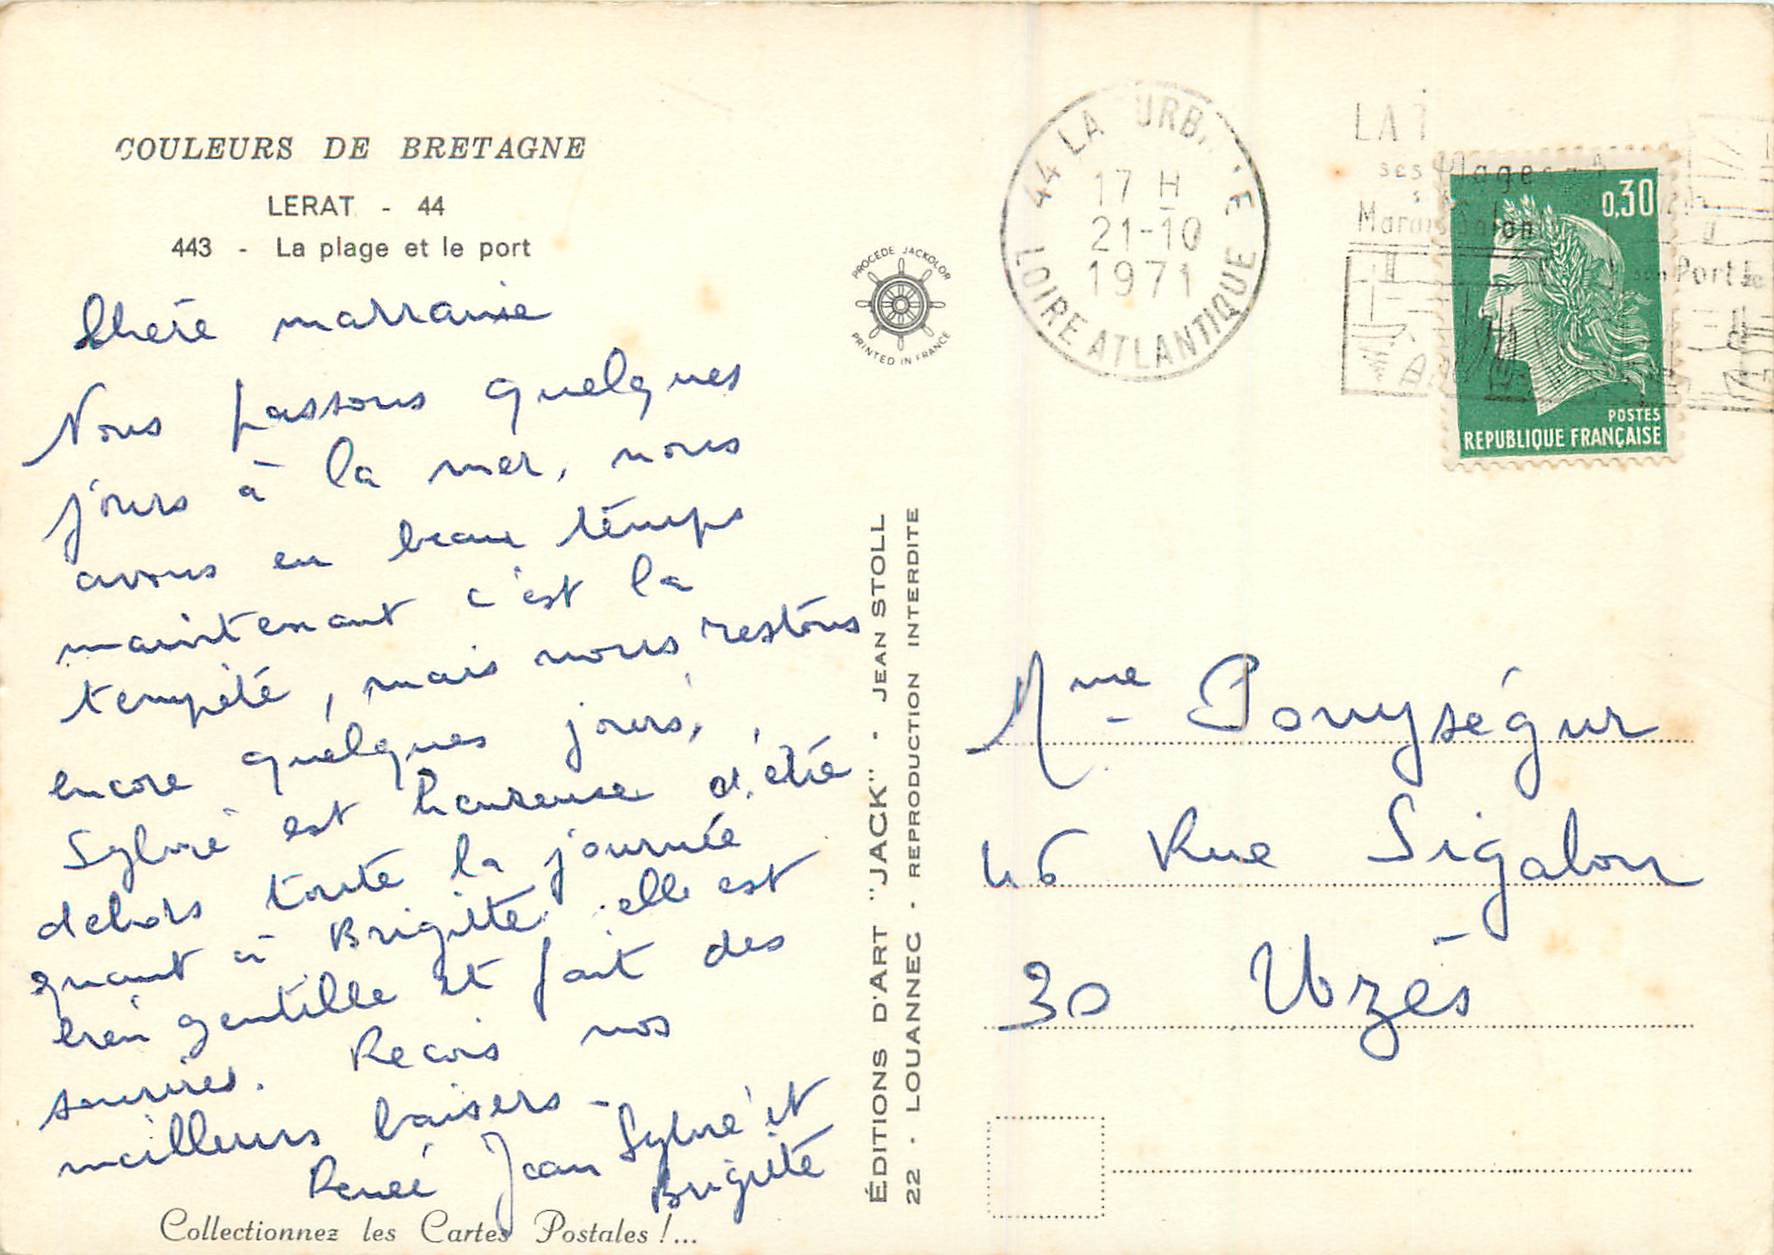 COULEURS DE BRETAGNE
LERAT - 44
443 - La plage et le port
Chère marraine
Nous passons quelques
jours à la mer, nous
avons eu beau temps
maintenant c'est la
tempête, mais nous restons
encore quelques jours,
Sylvie est heureuse d'être
dehors toute la journée
quant à Brigitte elle est
bien gentille et fait des
sourires. Recois nos
meilleurs baisers -
Renée Jean Sylvie et
Brigitte
Collectionnez les Cartes Postales !...
PROCÉDÉ JACKOLOR
PRINTED IN FRANCE
ÉDITIONS D'ART "JACK" - JEAN STOLL
22 - LOUANNEC - REPRODUCTION INTERDITE
44 LA URB E
17 H
21-10
1971
LOIRE ATLANTIQUE
LA
ses Plages
Marais Salants
son Port
0,30
POSTES
REPUBLIQUE FRANÇAISE
Mme Pouységur
46 Rue Sigalon
30 Uzès